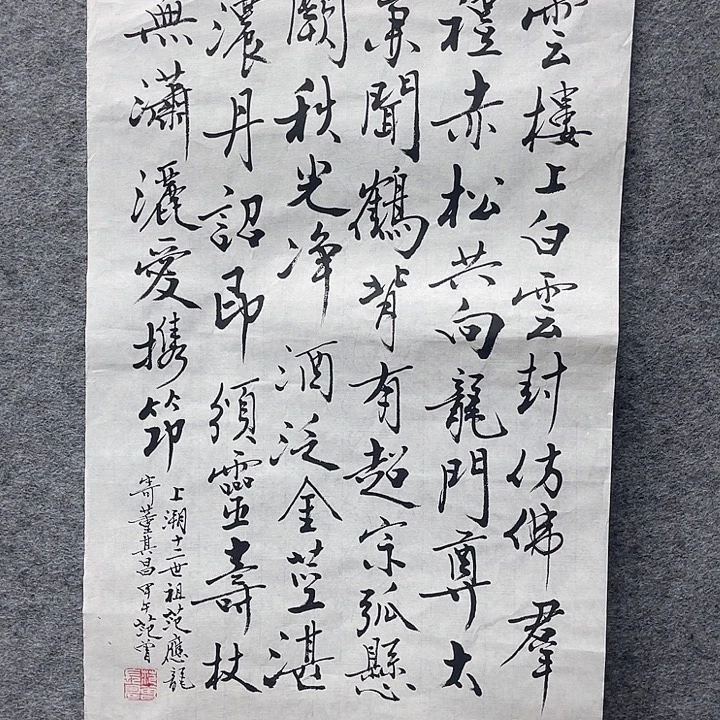 雲樓上白雲封仿佛羣
禮赤松共向龍門尊太
兼聞鶴背有超宗弧懸
闕秋光淨酒泛金莖湛
濃丹詔即頒靈壽杖
無瀟灑愛攜筇
上溯十二世祖范應龍
寄董其昌甲午范曾